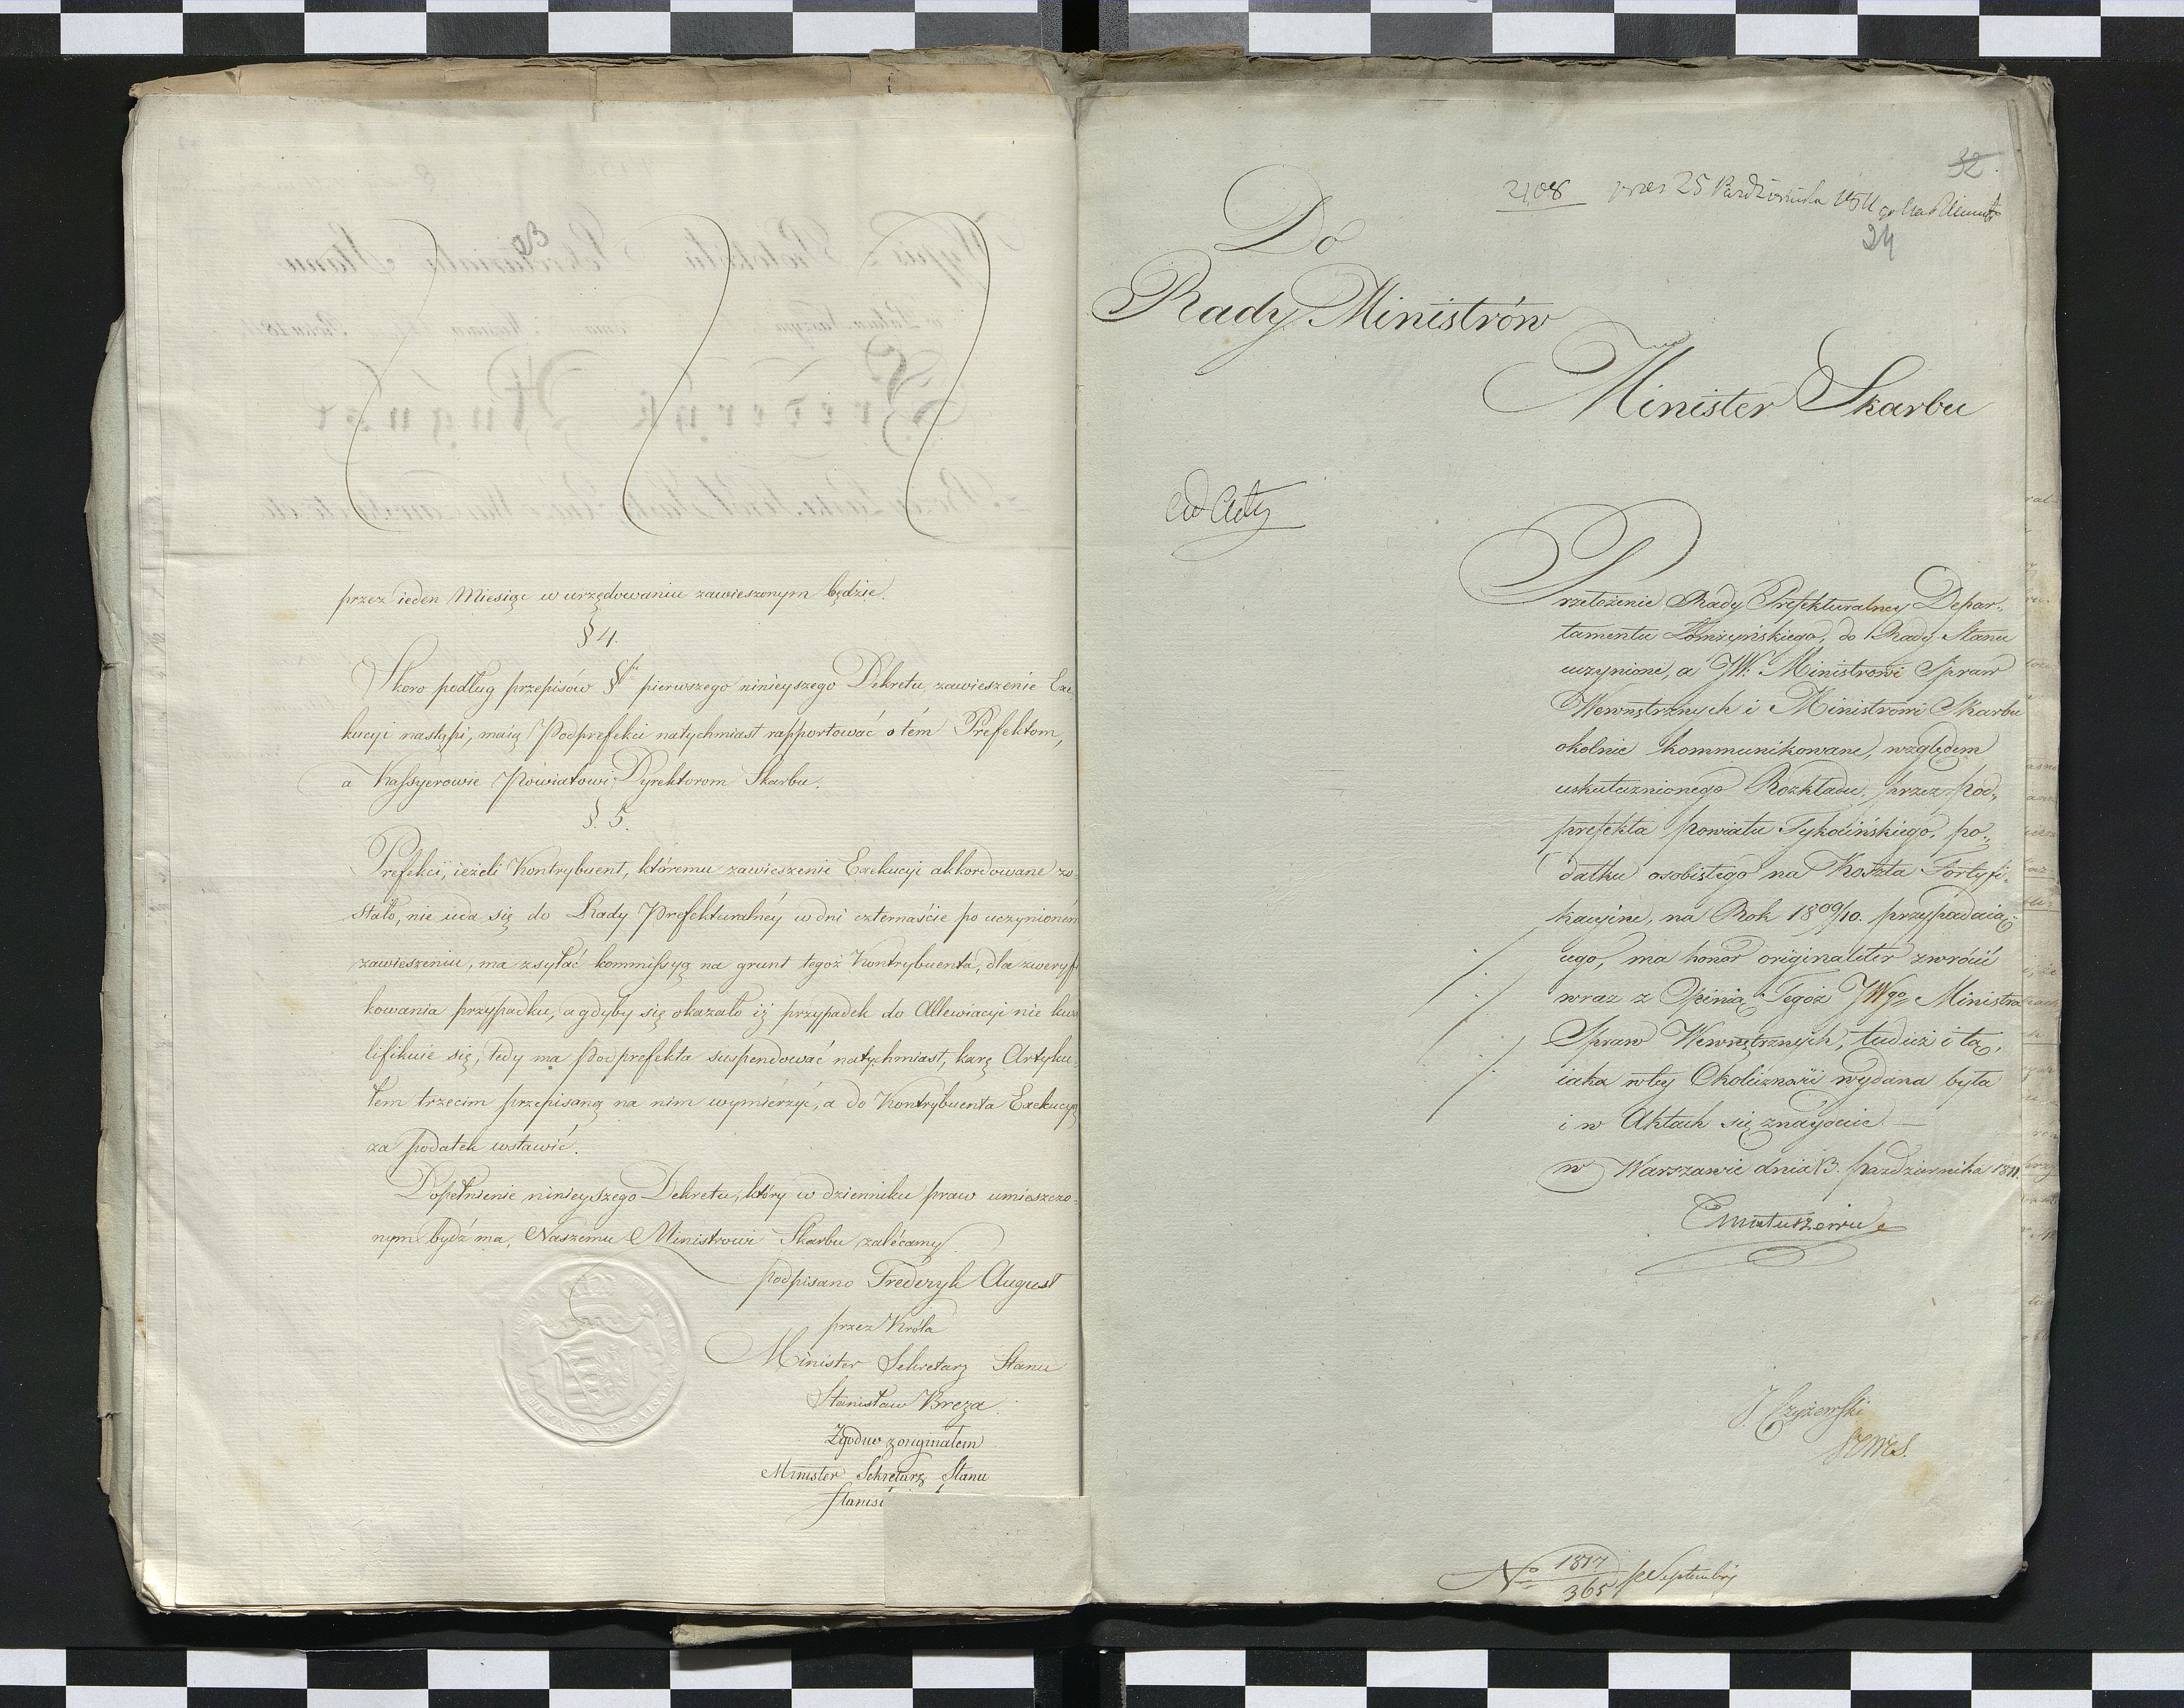 23
przez ieden Miesiąc w urzędowaniu zawieszonym będzie.
§ 4.
Skoro podług przepisów §fu pierwszego ninieyszego Dekretu, zawieszenie Exe-
kucyi nastąpi, maią Podprefekci natychmiast rapportować o tém Prefektom,
a Kassyerowie Powiatowi Dyrektorom Skarbu.
§. 5.
Prefekci, ieżeli Kontrybuent, któremu zawieszenie Exekucyi akkordowane zo-
stało, nie uda się do Rady Prefekturalnéy w dni czternaście po uczynioném
zawieszeniu, ma zsyłać kommissyą na grunt tegoż Kontrybuenta, dla zweryfi-
kowania przypadku, a gdyby się okazało iż przypadek do Allewiacyi nie kwa-
lifikuie się, tedy ma Podprefekta suspendować natychmiast, karę Artyku-
łem trzecim przepisaną na nim wymierzyć, a do Kontrybuenta Exekucyą
za podatek wstawić.
Dopełnienie ninieyszego Dekretu, który w dzienniku praw umieszczo-
nym bydź ma, Naszemu Ministrowi Skarbu zalécamy.
podpisano Frederyk August
przez Króla
Minister Sekretarz Stanu
Stanisław Breza
Zgodno z originałem
Minister Sekretarz Stanu
32.
2108 prez 25 Października 1811
24
Do
Rady Ministrów
Minister Skarbu
Ad Acta
Przełożenie Rady Prefekturalney Depar-
tamentu Łomżyńskiego, do Rady Stanu
uczynione, a JW. Ministrowi Spraw
Wewnętrznych i Ministrowi Skarbu
okolnie kommunikowane, względem
uskutecznionego Rozkładu, przez Pod-
prefekta Powiatu Tykocińskiego, po-
datku osobistego na Koszta Fortyfi-
kacyine, na Rok 1809/10. przypadaią-
cego, ma honor originaliter zwrócić
wraz z Opinią Tegoż JWgo Ministra
Spraw Wewnętrznych, tudzież i tą,
iaka w tey Okoliczności wydana była
i w Aktach się znayduie. —
w Warszawie dnia 13. Października 1811.
Matuszewic
J. Czyżewski
No 1817/365 Septembry